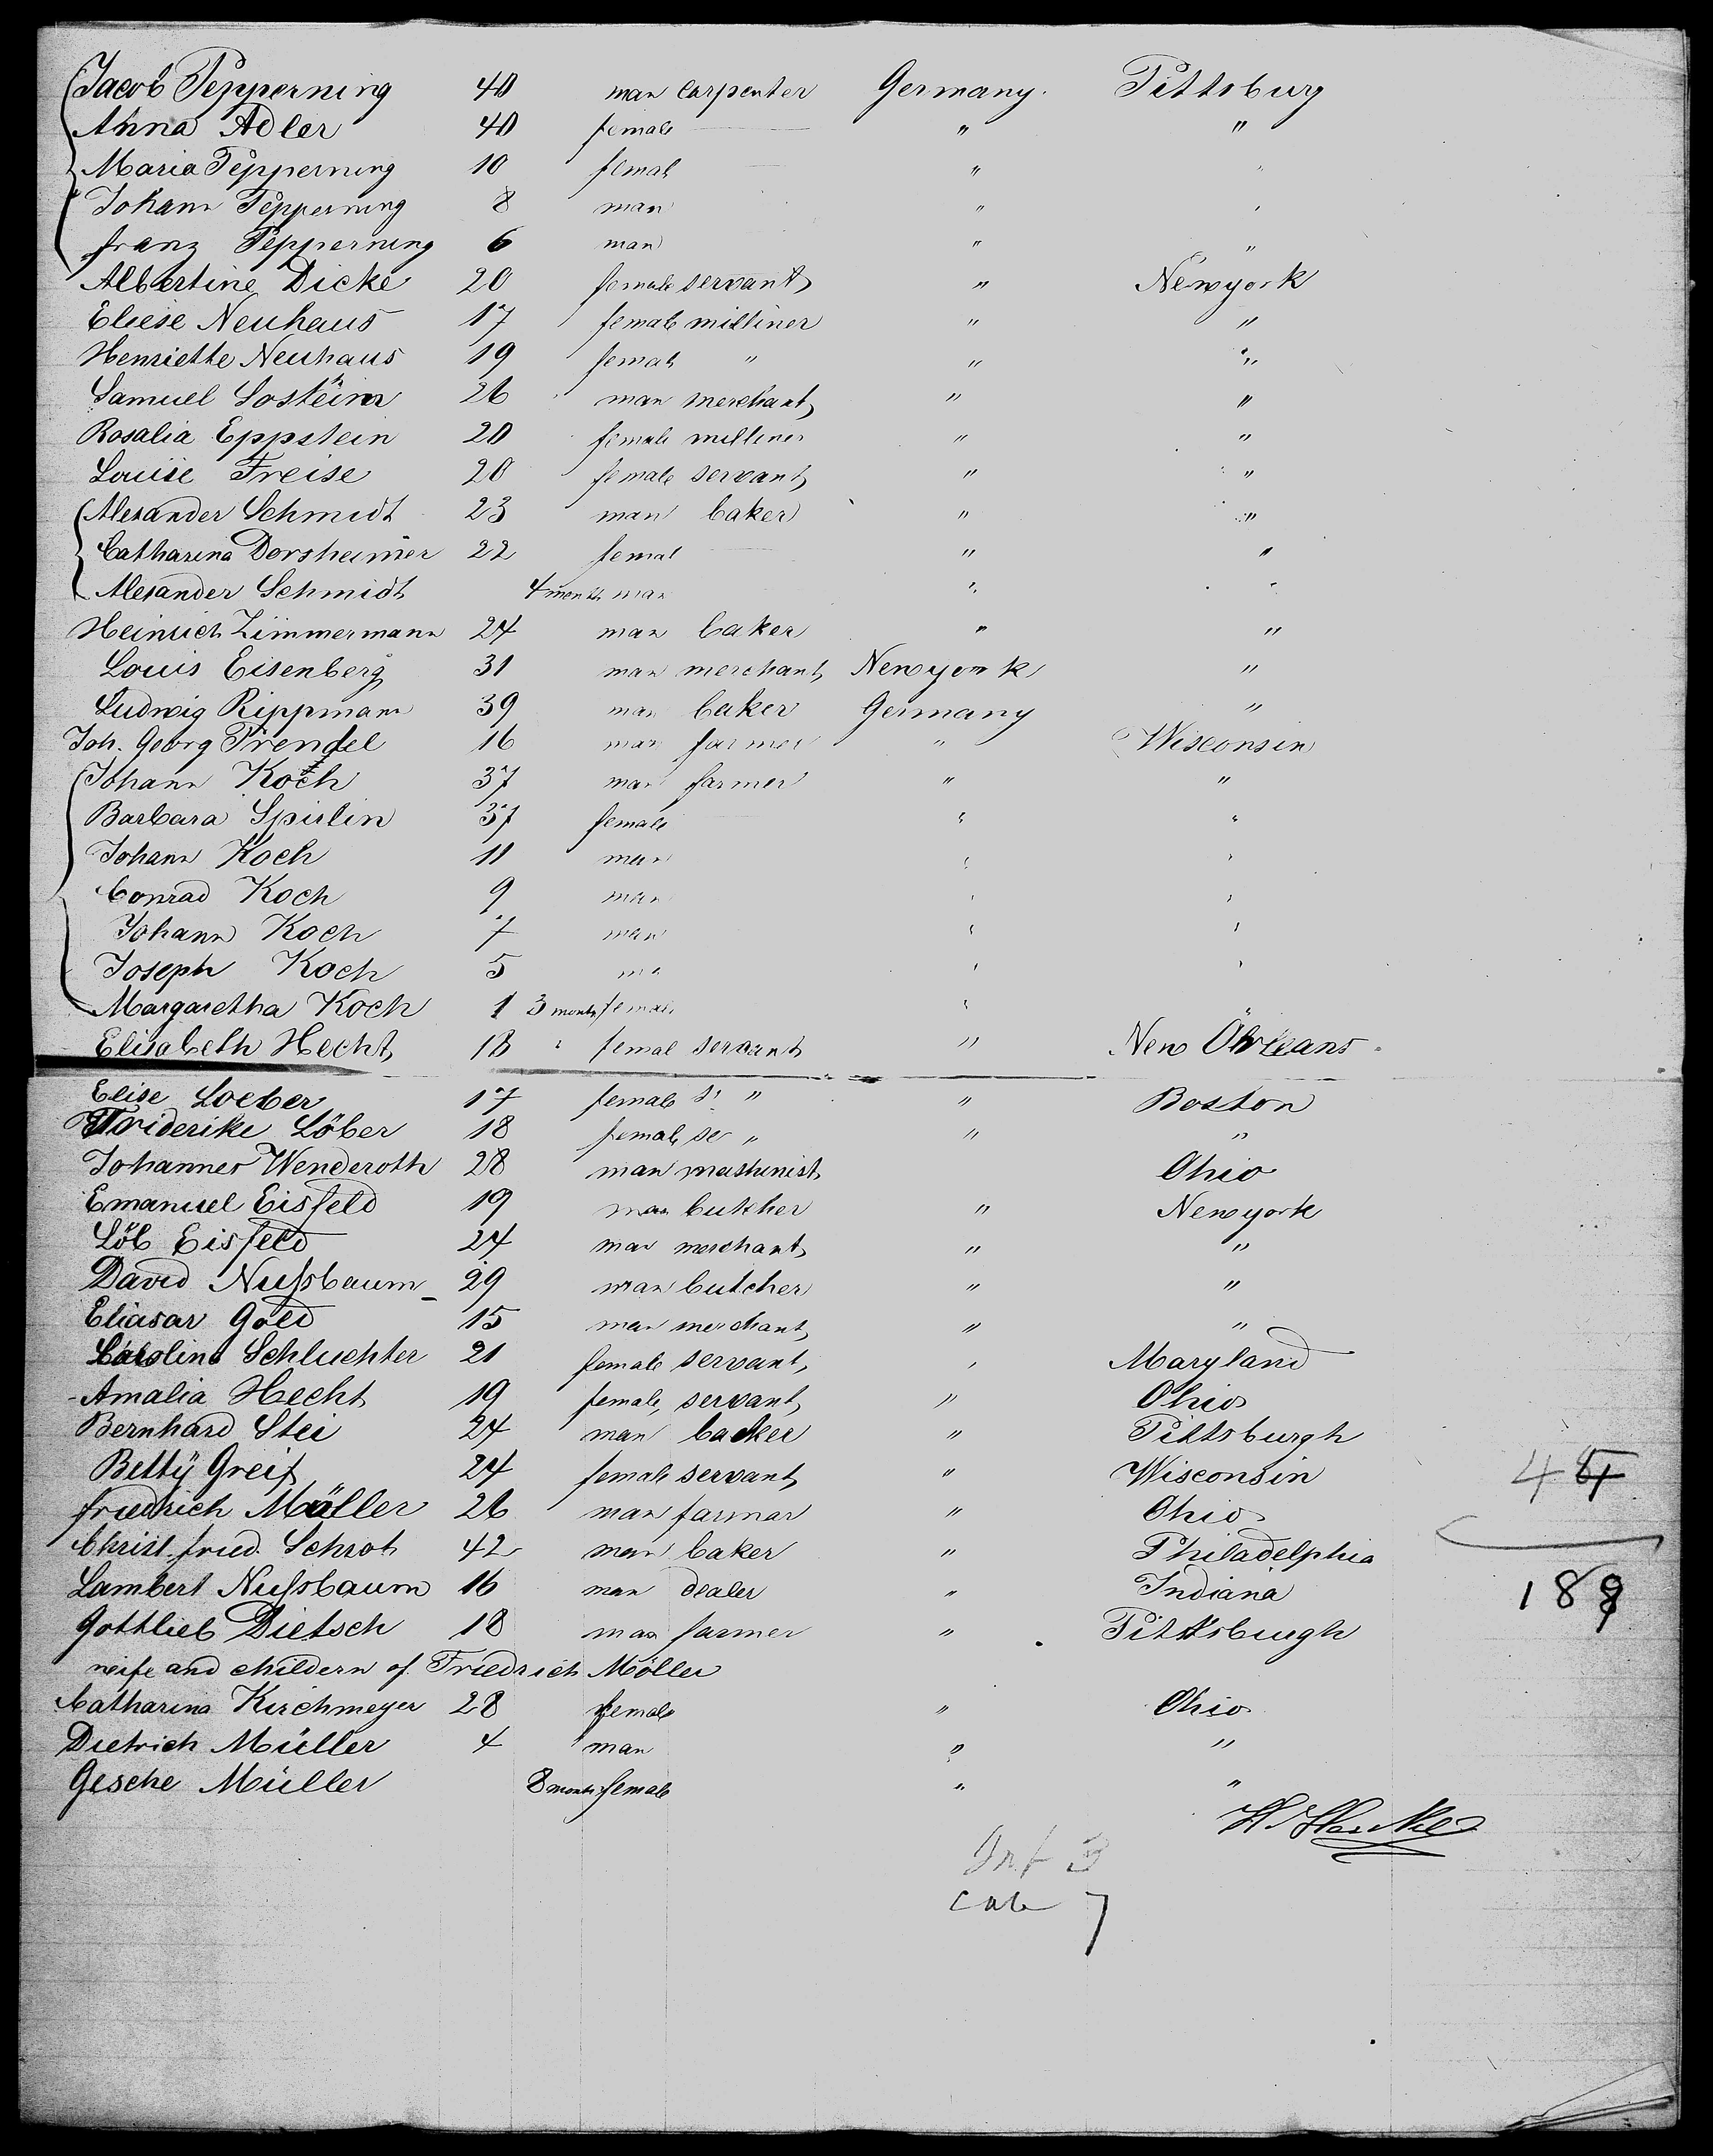 Jacob Pepperning 40 man carpenter Germany. Pittsburg
Anna Adler 40 female " "
Maria Pepperning 10 femal " "
Johann Pepperning 8 man " "
franz Pepperning 6 man " "
Albertine Dicke 20 female servant " Newyork
Eliese Neuhaus 17 female milliner " "
Henriette Neuhaus 19 female " " "
Samuel 26 man merchant " "
Rosalia Eppstein 20 female milliner " "
Louise Freise 20 female servant " "
Alexander Schmidt 23 man baker " "
Catharina Dorsheimer 22 femal " "
Alexander Schmidt 4 month man " "
Heinrich Zimmermann 24 man baker " "
Louis Eisenberg 31 man merchant Newyork "
Ludwig Rippmann 39 man baker Germany "
Joh. Georg Prendel 16 man farmer " Wisconsin
Johann Koch 37 man farmer " "
Barbara Spirlin 37 female " "
Johann Koch 11 man " "
Conrad Koch 9 man " "
Johann Koch 7 man " "
Joseph Koch 5 ma " "
Margaretha Koch 1 3 month female "
Elisabeth Hecht 18 femal servant " New Orleans
Elise Loeber 17 female s " " Boston
Friderike Löber 18 female se " " "
Johannes Wenderoth 28 man mashinist Ohio
Emanuel Eisfeld 19 man butcher " Newyork
Löb Eisfeld 24 man merchant " "
David Nußbaum 29 man butcher " "
Eliasar Gold 15 man merchant " "
Caroline Schluchter 21 female servant " Maryland
Amalia Hecht 19 female servant " Ohio
Bernhard Stei 24 man backer " Pittsburgh
Betty Greif 24 female servant " Wisconsin
friedrich Möller 26 man farmar " Ohio
Christ. fried. Schrot 42 man baker " Philadelphia
Lambert Nußbaum 16 man dealer " Indiana
Gottlieb Dietsch 18 man farmer " Pittsburgh
weife and childern of Friedrich Möller
Catharina Kirchmeyer 28 female " Ohio
Dietrich Müller 4 man " "
Gesche Müller 8 month female " "
Inf 3
Cab 7